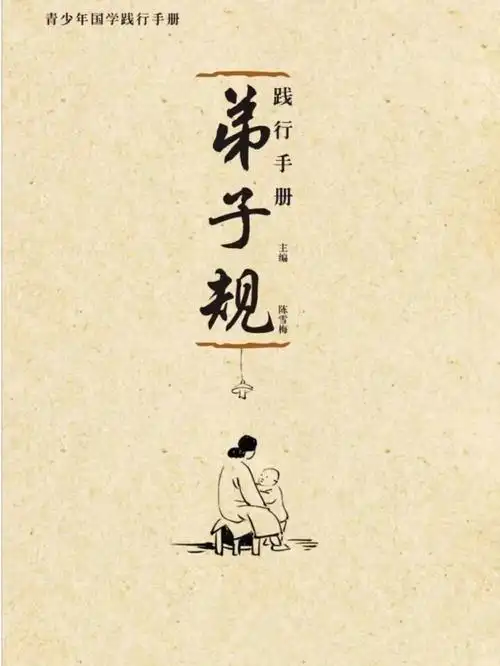 青少年国学践行手册
弟子规
践行手册
主编
陈雪梅